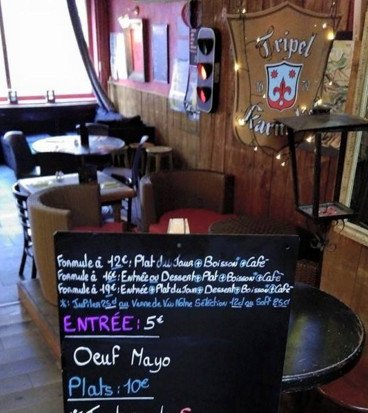 Tripel
Karm
Formule à 12€: Plat du Jour + Boisson + Café
Formule à 16€: Entrée ou Dessert + Plat + Boisson + Café
Formule à 19€: Entrée + Plat du Jour + Dessert + Boisson + Café
*: Jupiler 25cl ou Verre de Vin Notre Sélection 12cl ou Soft 25cl
ENTRÉE: 5€
Oeuf Mayo
Plats: 10€